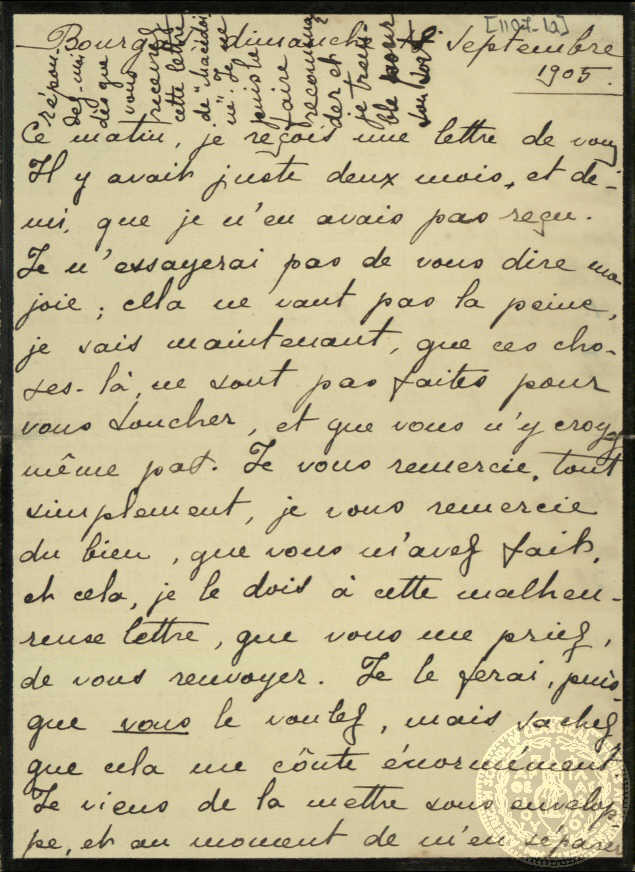 [1107-1a]
Bourgas dimanche septembre
1905.
répon-
dez-moi
dès que
vous
recevez
cette lettre
de "Macédoi-
ne". Je ne
puis la
faire
recomman-
der et
je trem-
ble pour
son sort.
Ce matin, je reçois une lettre de vous
Il y avait juste deux mois, et de-
mi, que je n'en avais pas reçu.
Je n'essayerai pas de vous dire ma
joie ; cela ne vaut pas la peine,
je sais maintenant, que ces cho-
ses-là, ne sont pas faites pour
vous toucher, et que vous n'y croyez
même pas. Je vous remercie, tout
simplement, je vous remercie
du bien, que vous m'avez fait,
et cela, je le dois à cette malheu-
reuse lettre, que vous me priez,
de vous renvoyer. Je le ferai, puis-
que vous le voulez, mais sachez
que cela me côute énormément.
Je viens de la mettre sous envelop
pe, et au moment de m'en séparer